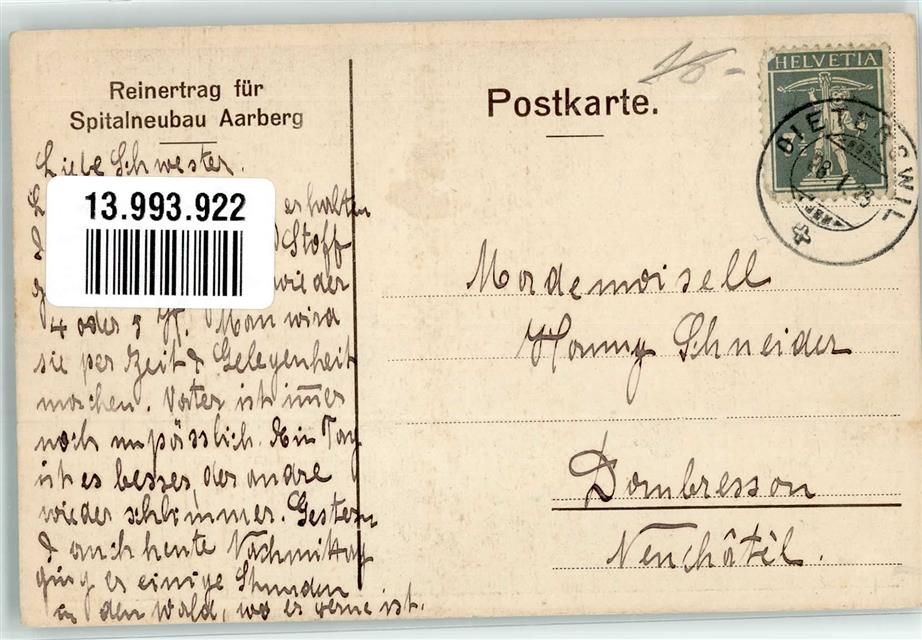 Reinertrag für
Spitalneubau Aarberg
Postkarte.
HELVETIA
DIETERSWIL
28. I. 23
13.993.922
Liebe Schwester.
erhalten
Stoff
wieder
4 oder 5 Man wird
sie per Zeit & Gelegenheit
machen. Vater ist im̅er
noch unpässlich. Ein Tag
ist es besser, der andre
wieder schlimmer. Gestern
& auch heute Nachmittag
ging er einige Stunden
in den Wald, wo er gerne ist.
Mademoisell
Hanny Schneider
Dombresson
Neuchâtel.